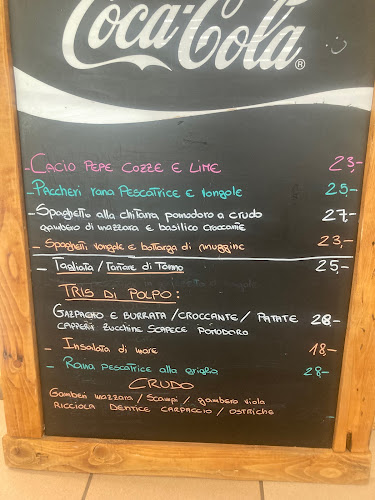 Coca-Cola®
- CACIO PEPE COZZE E LIME 23,-
- PACCHERI RANA PESCATRICE E VONGOLE 25,-
- SPAGHETTO alla CHITARRA POMODORO A CRUDO 27,-
GAMBERO di MAZZARA E BASILICO CROCCANTE
- SPAGHETTI VONGOLE E BOTTARGA DI MUGGINE 23,-
- TAGLIATA / TARTARE DI TONNO 25,-
TRIS DI POLPO:
GAZPACHO E BURRATA / CROCCANTE / PATATE 28,-
CAPPERI ZUCCHINE SCAPECE POMODORO
- INSALATA DI MARE 18,-
- RANA PESCATRICE ALLA GRIGLIA 28,-
CRUDO
GAMBERI MAZZARA / SCAMPI / GAMBERO VIOLA
RICCIOLA DENTICE CARPACCIO / OSTRICHE